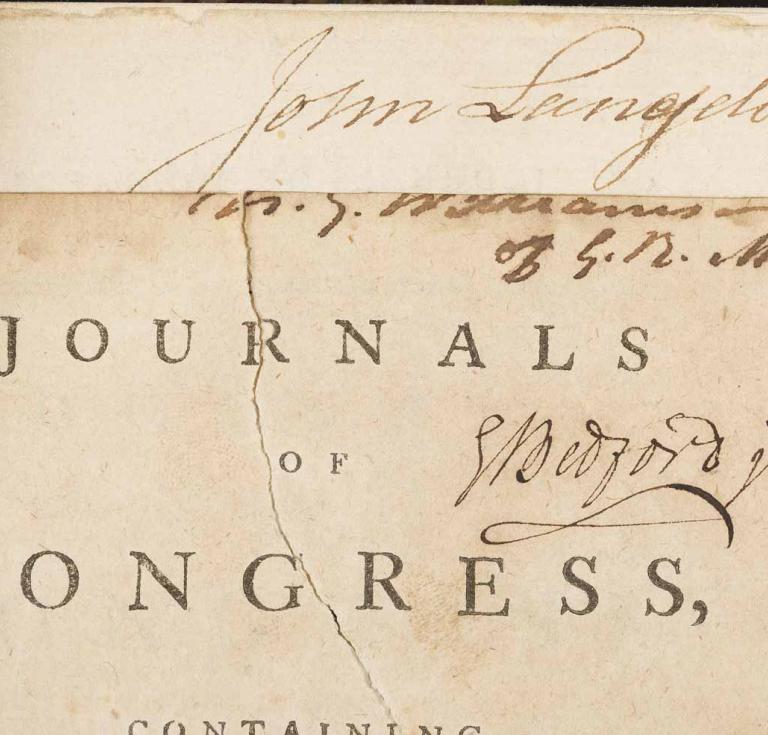 John Langdo
of G. R. M
JOURNALS
OF
GBedford j
ONGRESS,
CONTAINING